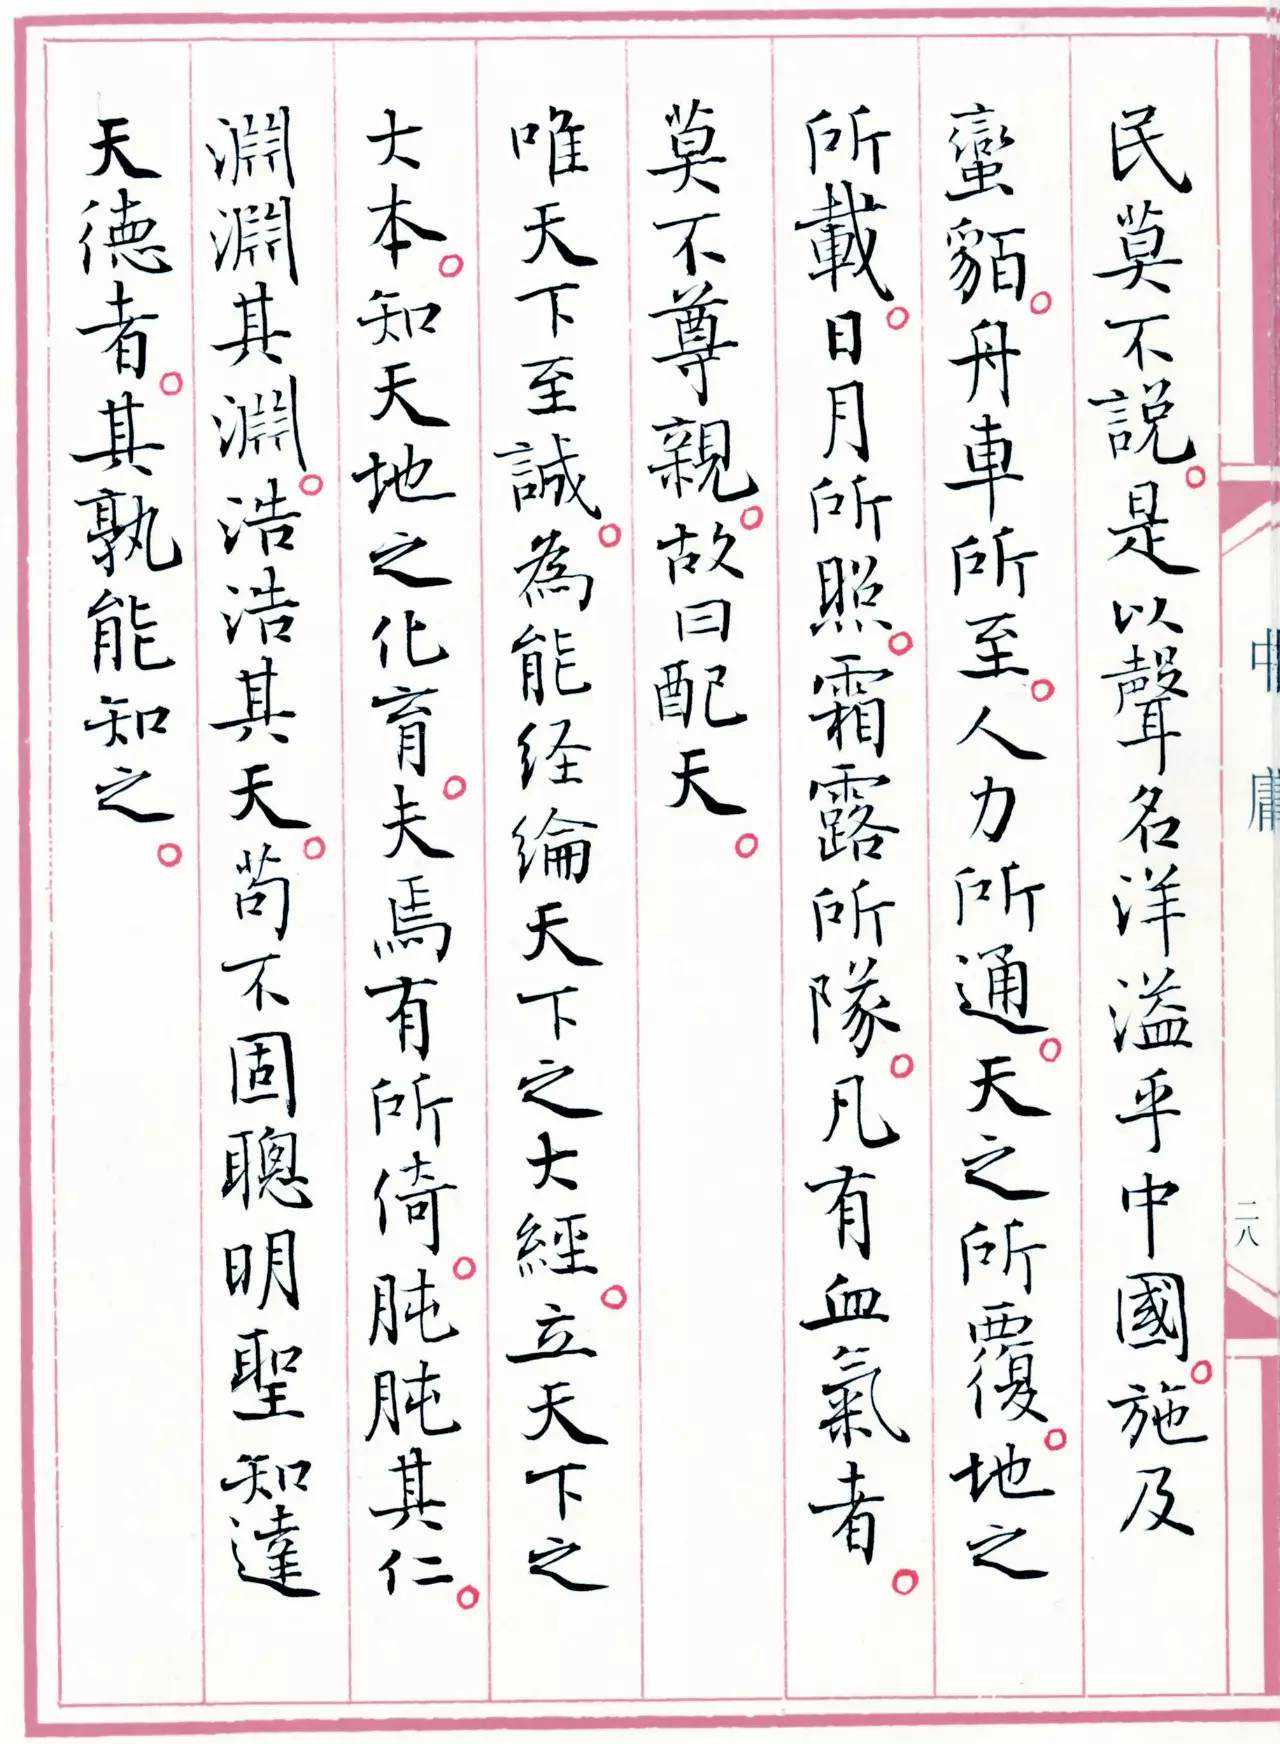 中庸
二八
民莫不説。是以聲名洋溢乎中國。施及
蠻貊。舟車所至。人力所通。天之所覆。地之
所載。日月所照。霜露所隊。凡有血氣者。
莫不尊親。故曰配天。
唯天下至誠。為能経綸天下之大經。立天下之
大本。知天地之化育。夫焉有所倚。肫肫其仁。
淵淵其淵。浩浩其天。苟不固聰明聖知達
天德者。其孰能知之。